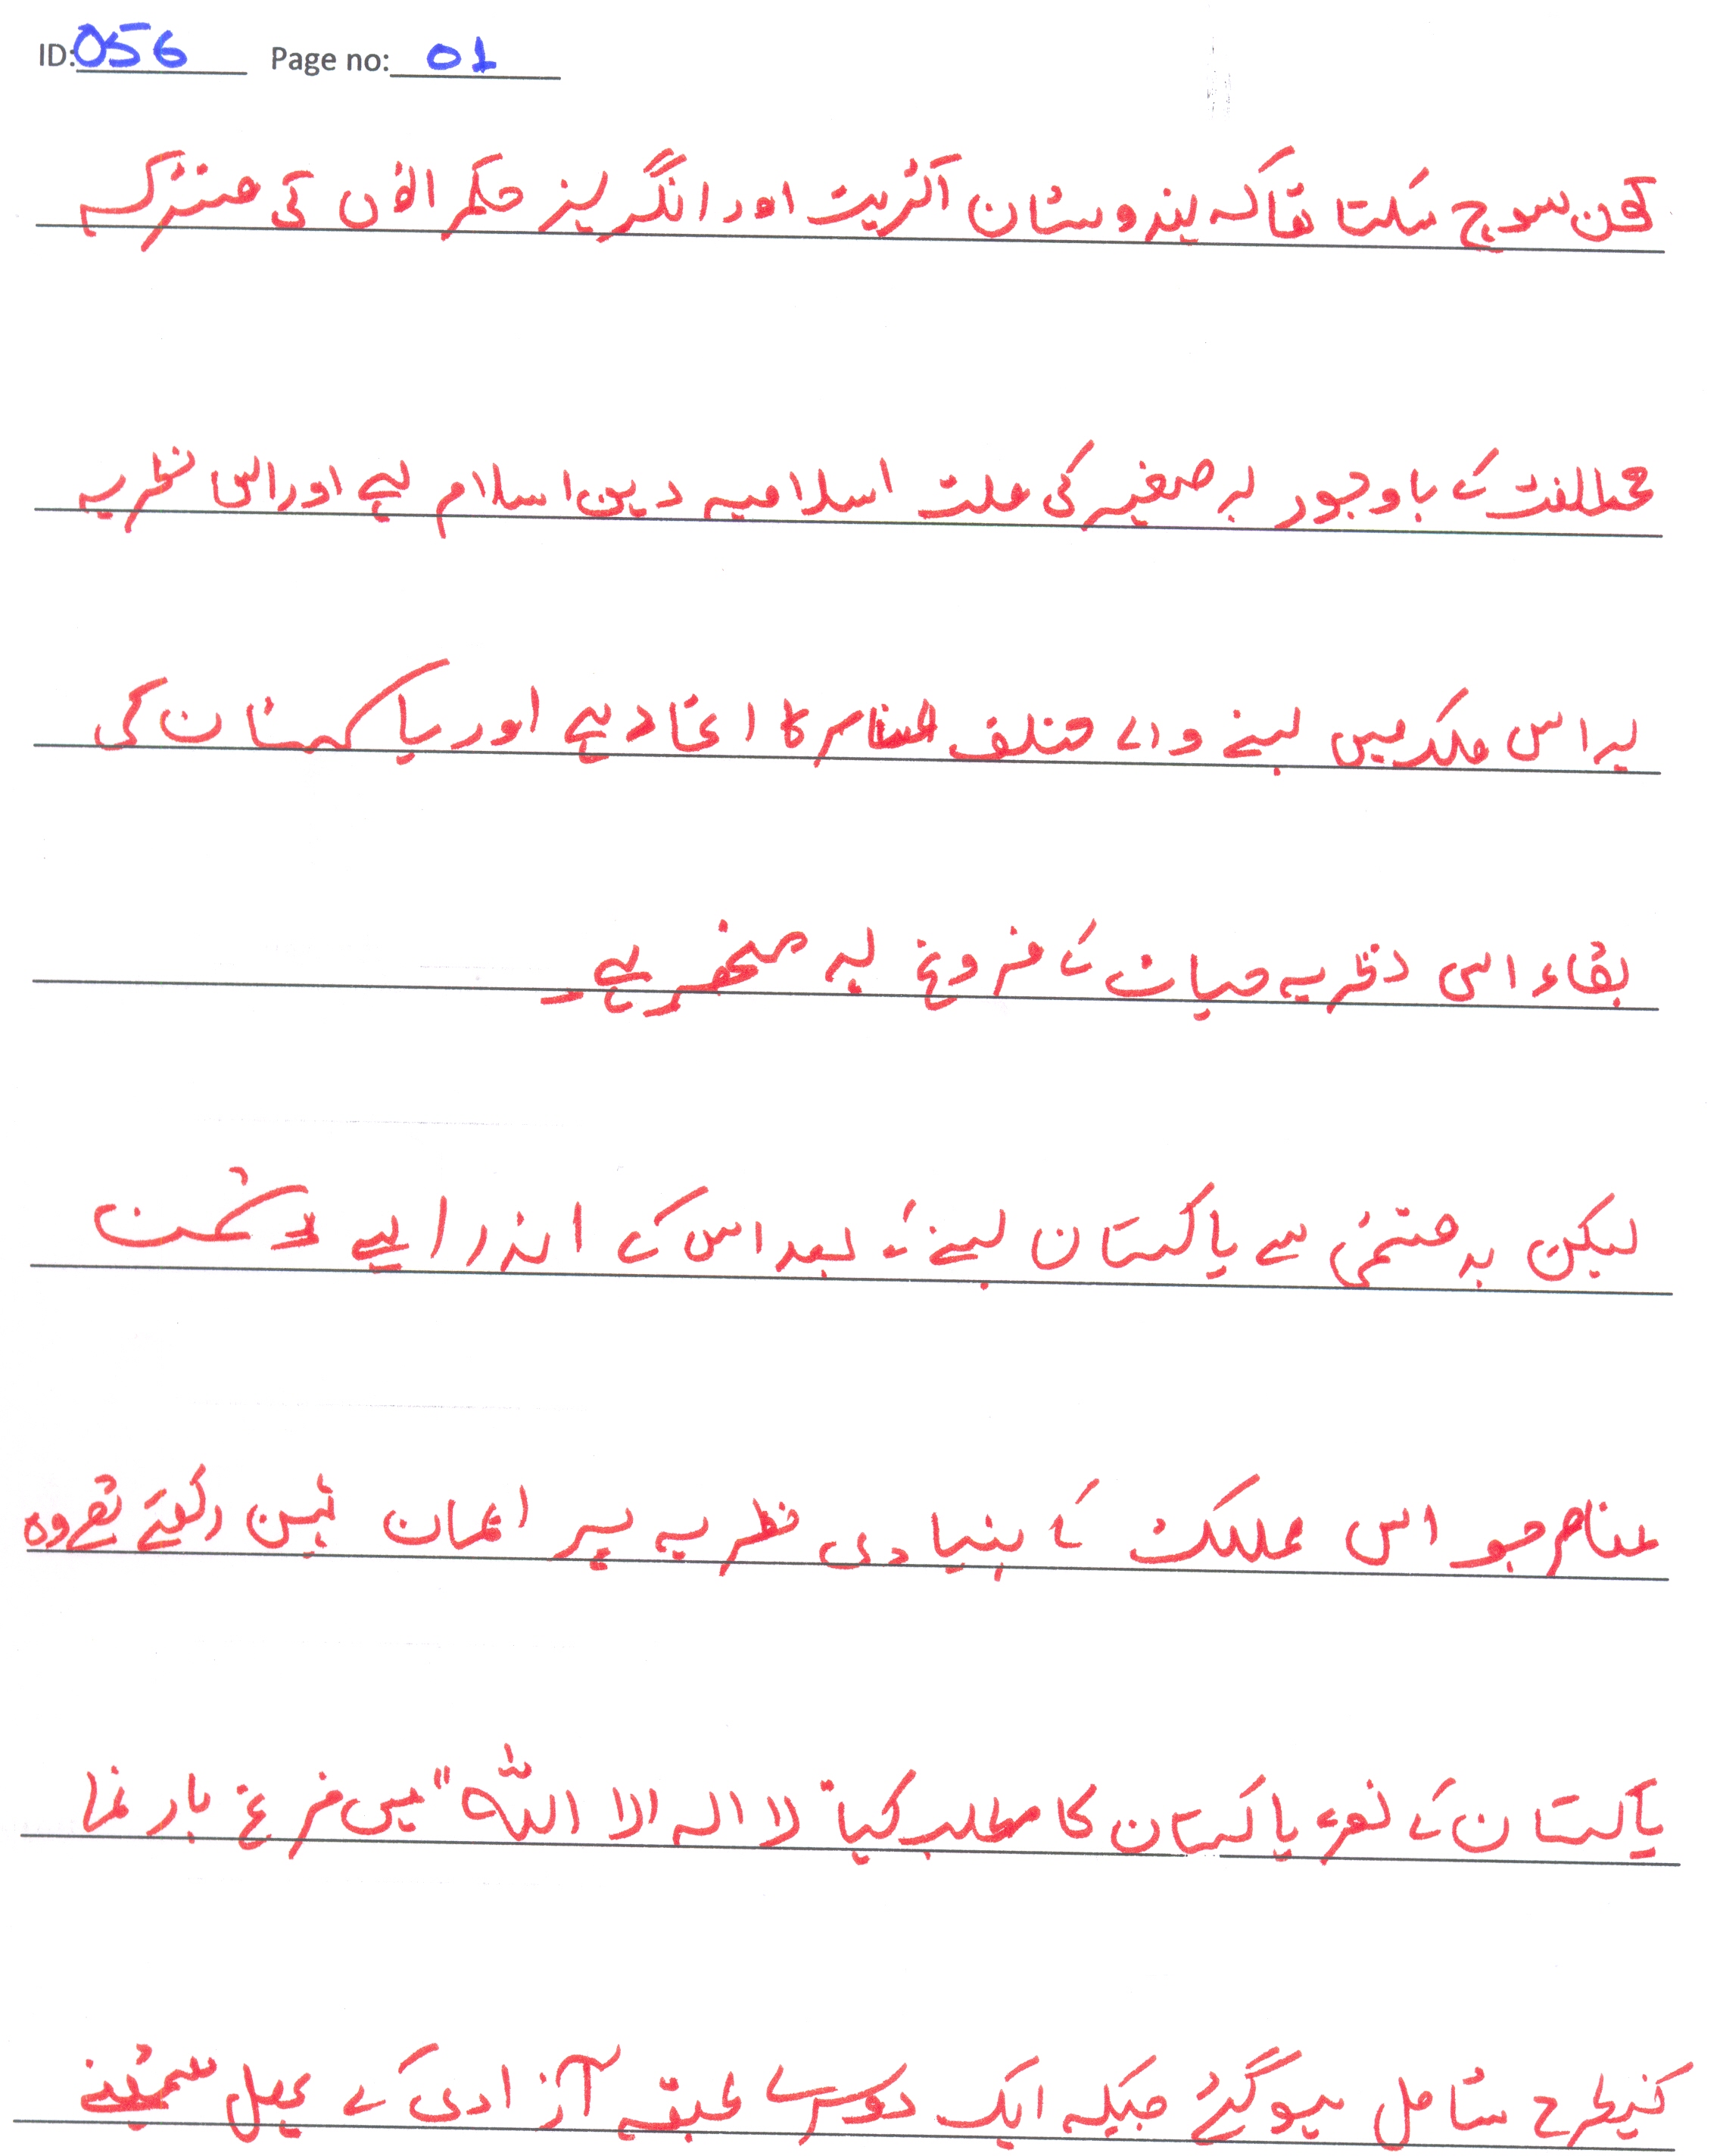 ID: 056 Page no: 01
کون سوچ سکتا تھا کہ ہندوستان اکثریت اور انگریز حکمرانوں کی مشترکہ
مخالفت کے باوجود برصغیر کی ملت اسلامیہ دین اسلام ہے اور اس نظریہ
پر اس ملک میں بسنے والے مختلف عناصر کا اتحاد ہے اور پاکستان کی
بقاء اسی نظریہ حیات کے فروغ پر منحصر ہے۔
لیکن بدقسمتی سے پاکستان بننے کے بعد اس کے اندر ایسے
عناصر جو اس مملکت کے بنیادی نظریہ پر ایمان نہیں رکھتے تھے وہ
پاکستان کے نعرہ پاکستان کا مطلب کیا "لا الہ الا اللہ" میں
کسطرح شامل ہوگئے جبکہ ایک دوسرے طبقے آزادی کے پھل سمیٹنے